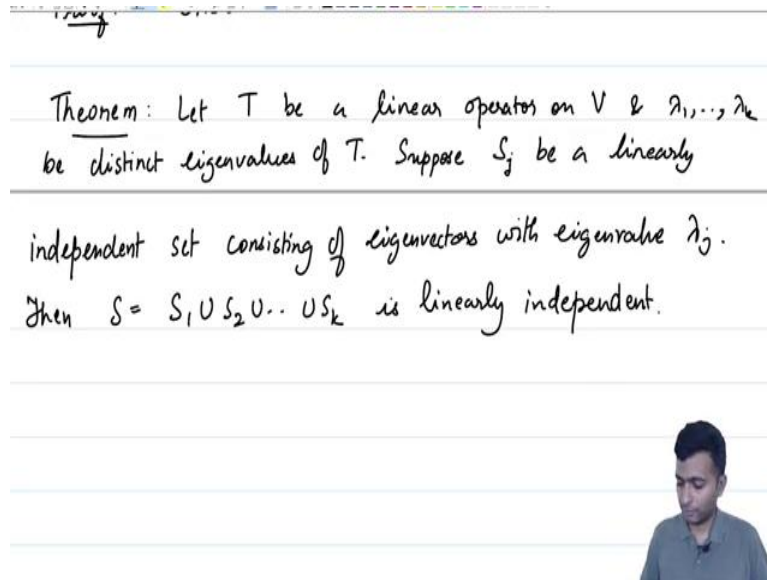 Theorem: Let T be a linear operator on V & λ₁,.., λₖ
be distinct eigenvalues of T. Suppose Sⱼ be a linearly
independent set consisting of eigenvectors with eigenvalue λⱼ.
Then S = S₁ ∪ S₂ ∪ .. ∪ Sₖ is linearly independent.